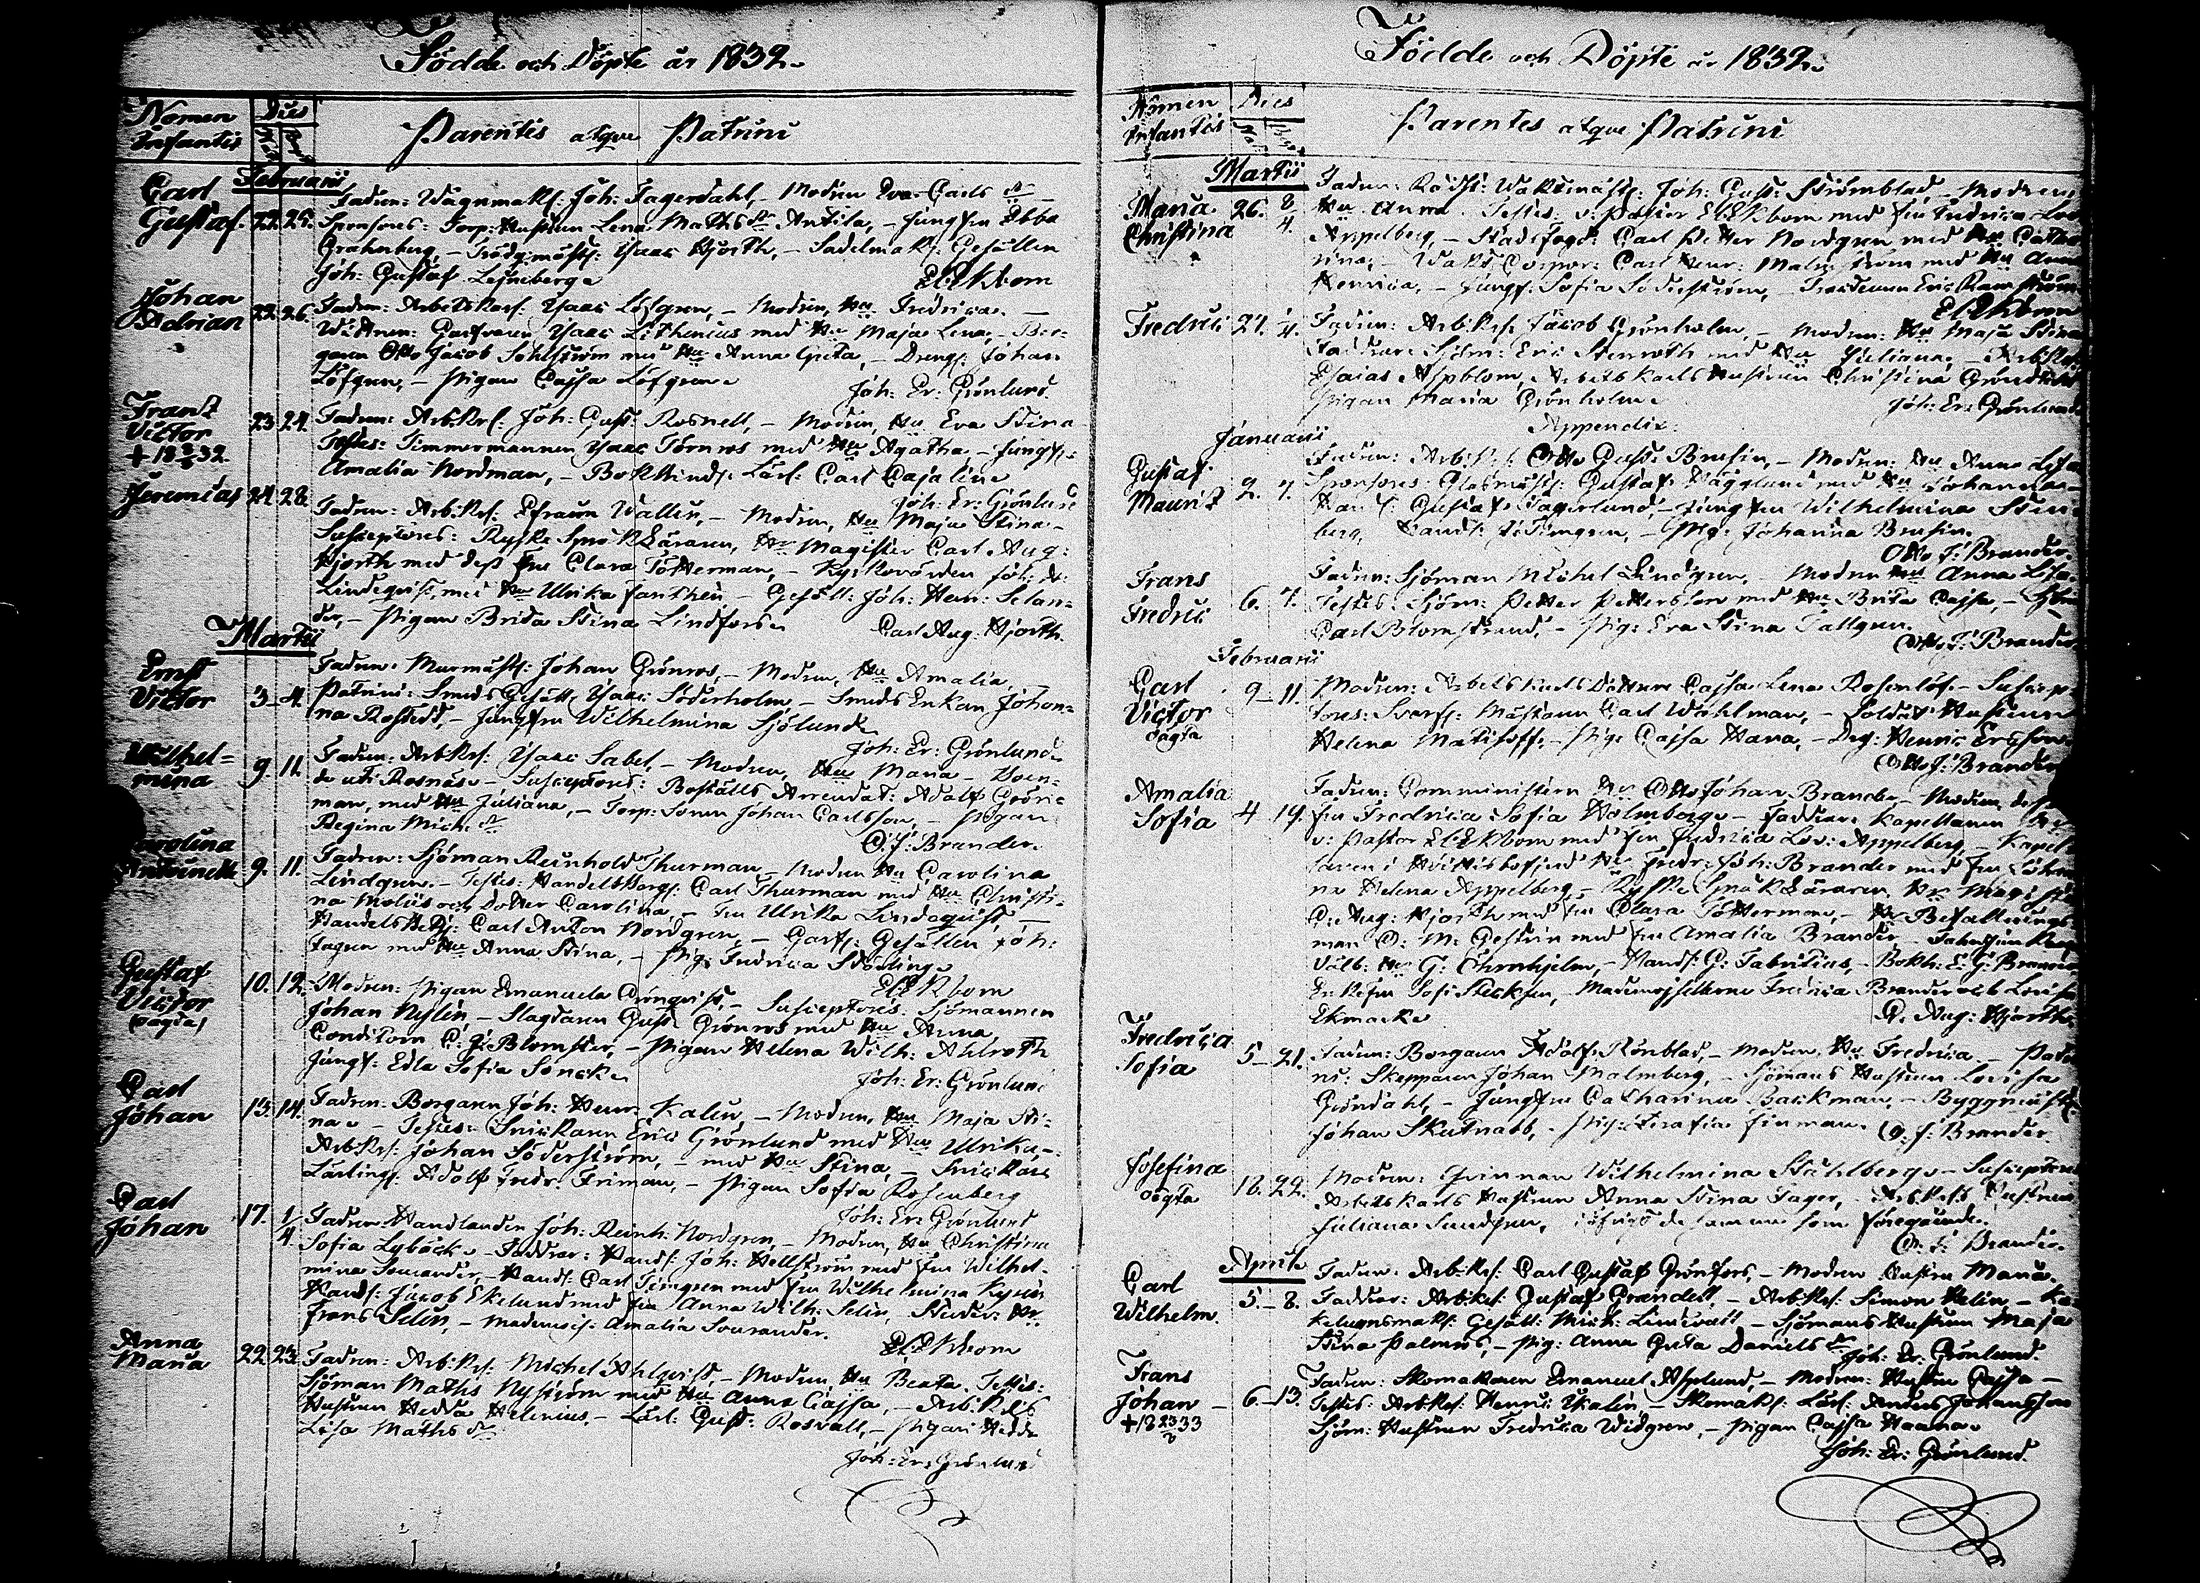 Födde och Döpte år 1832.
Nomen Infantis
Dies
Parentes atque Patrini
Februarii
Carl Gustaf. 22. 25.
Fadren: Wagnmak: Joh: Fagerdahl, – Modren Eva Carlsdr
Sponsores: Torp: Hustrun Lena Mathsdr Antila, – Jungfrun Ebba
Grahnberg, – Isaac Hjorth, – Sadelmak: Gesällen
Joh: Gustaf
El: Ekbom
Johan Adrian 22. 26.
Fadren: Arbetskarl: Isaac Löfgren, – Modren, Hu Fredrica –
Wittnen: Isaac Lithenius med Hu Maja Lena, – Bor-
garen Otto Jacob Sohlström med Hu Anna Greta, – Drengn: Johan
Löfgren, – Pigan Cajsa Löfgren.
Joh: Er: Grönlund.
Frans Victor 23. 24.
+ 18 32.
Fadren: Arb:Krl: Joh: Gust: Rosnell, – Modren, Hu Eva Stina
Testes: Timmermannen Isaac Törnros med Hu Agatha, – Jungf:
Amalia Nordman, – Bokbind: Lärl: Carl Cajalin
Joh: Er: Grönlund
Jeremias 24. 28.
Fadren: Arb:Krl: Efraim Wallin, – Modren, Hu Maja Stina –
Susceptores: Ryska Språk Läraren, Hr Magister Carl Aug:
Hjorth med dess Fru Clara Tötterman, –
Lindeqvist med Hu Ulrika – Gesäll: Joh: Henr: Selan-
der, – Pigan Brita Stina Lindfors
Carl Aug: Hjorth.
Martii
Ernst Victor 3. 4.
Fadren: Murmäst: Johan Grönros, – Modren, Hu Amalia –
Patrini: Smeds Gesäll Isaac Söderholm, – Smeds Enkan Johan-
na Rostedt, – Jungfru Wilhelmina Sjölund
Joh: Er: Grönlund
Wilhel=mina 9. 11.
Fadren: Arb:Krl: Isaac Sabel, – Modren, Hu Maria – Boen-
de uti Rosnäs – Susceptores: Boställs Arrendat: Adolf Grön-
man, med Hu Juliana, – Torp: Sonen Johan Carlsson, – Pigan
Regina Mich:dr
O: J: Brander.
Carolina Antoinette 9. 11.
Fadren: Sjöman Reinhold Thurman, – Modren Hu Carolina
Lindgren. – Testes: Handels Borg: Carl Thurman med Hu Christi-
na Molin och Dotter Carolina, – Fru Ulrika Lindeqvist, –
Handels Betj: Carl Anton Nordgren, – Garf: Gesällen Joh:
Fagren med Hu Anna Stina, – Pig: Fredrica Störling
El: Ekbom
Gustaf Victor (oägta) 10. 12.
Modren: Pigan Emanuela Grönqvist, – Susceptores: Sjömannen
Johan Nylin, – Slagtaren Gust: Grönros med Hu Anna
Conditorn C: J: Blomster, – Pigan Helena Wilh: Ahlroth
Jungf: Edla Sofia Soncke
Joh: Er: Grönlund
Carl Johan 13. 14.
Fadren: Borgaren Joh: Henr: Kalin, – Modren, Hu Maja Sti-
na – Testes: Snickaren Eric Grönlund med Hu Ulrika, –
Arb:Krl: Johan Söderström, – med Hu Stina, – Snickare
Lärling: Adolf Fredr: Friman, – Pigan Sofia Rosenberg
Joh: Er: Grönlund
Carl Johan 17. 1/4
Fadren Handlanden Joh: Reinh: Nordgren, – Modren, Hu Christina
Sofia Lybäck – Faddrar: Handl: Joh: Hellström med Fru Wilhel-
mina Sourander, – Handl: Carl Timgren med Fru Wilhelmina
Handl: Jacob Ekelund med Fru Anna Wilh: Selin, Studer: Hr
Frans Selin, – Mademois: Amalia Sourander.
El: Ekbom
Anna Maria 22. 23.
Fadren: Arb:Krl: Michel Ahlqvist, – Modren Hu Beata. Testes:
Sjöman Maths Nyström med Hu Anna Cajsa, – Arb:Krls
Hustrun Hedda Helenius, – Lärl: Gust: Rosvall, – Pigan Hedda
Lisa Mathsdr
Joh: Er: Grönlund
Födde och Döpte år 1832.
Nomen Infantis
Dies
Parentes atque Patrini
Martii
Maria Christina 26. 8/4.
Fadren: Joh: Gust: Strömblad – Modren
Hu Anna. Testes: v: Pastor El: Ekbom med Fru Fredrica Lov:
Appelberg, – Stadsfogd: Carl Petter Nordgren med Hu Catha-
rina, – Carl Henr: Malmström med Hu Anna
Henrica, – Jungf: Sofia Söderström, –
El: Ekbom
Fredric 27. 1/4.
Fadren: Arb:Krl: Jacob Grönholm, – Modren: Hu Maja Stina
Faddrar: Sjöm: Eric Stenroth med Hu Juliana, – Arb:Krl:
Esaias Aspblom, Arbetskarls Hustrun Christina
Pigan Maria Grönholm
Joh: Er: Grönlund
Appendix.
Januarii
Gustaf Maurits 2. 4.
Fadren: Arb:Krl: Otto Gust: Brusin, – Modren: Hu Anna Lisa
Sponsores: Glasmäst: Gustaf Hägglund med Hu Johanna –
Handl: Gustaf Fagerlund, – Jungfrun Wilhelmina Stein-
berg, Handl: J: Timgren, – Pig: Johanna Brusin.
Otto J: Brander.
Frans Fredric 6. 7.
Fadren: Sjöman Michel Lindgren, – Modren Hu Anna Lisa.
Testes: Sjöm: Petter Pettersson med Hu Brita Cajsa, –
Carl Blomstrand, – Pig: Eva Stina Tallgren.
Otto J: Brander.
Februarii
Carl Victor oägta 9. 11.
Modren: Arbetskarls Dottren Cajsa Lena Rosenlöf. – Suscep-
tores: Svarf: Mästaren Carl Wahlman, – Soldat Hustrun
Helena Matitoff, – Pig: Cajsa Hava, – Drg: Henric Ericsson
Otto J: Brander
Amalia Sofia 4. 19.
Fadren: Comministern Hr Otto Johan Brander – Modren dess
Fru Fredrica Sofia Holmberg – Faddrar: Kapellanen
v: Pastor El: Ekbom med Fru Fredrica Lov: Appelberg – Kapel-
lanen i Hvittisbofjerd Hr Fredr: Joh: Brander med Fru Johan-
na Helena Appelberg – Ryska Språk Läraren, Hr Magister
C: Aug: Hjorth med Fru Clara Tötterman, – Hr Befallnings-
man O: M: Gestrin med Fru Amalia Brander,
Hr G: Öhrnhjelm, – Handl: G: Fabritius, – Bokh: E: G: Brander
Enkefru Sofi Mademoisellerna Fredrica Brander och Lovisa
Ekmark
C: Aug: Hjorth
Fredrica Sofia 5. 21.
Fadren: Borgaren Adolf Rönblad, – Modren Hu Fredrica. – Patri-
ni: Skepparen Johan Malmberg, – Sjömans Hustrun Lovisa
Gröndahl, – Jungfru Catharina Backman, – Byggmäst:
Johan Skutnabb, – Pig: Serafia Finman.
O: J: Brander.
Josefina oägta 18. 22.
Modren: Qvinnan Wilhelmina Ståhlberg – Susceptores
Arbetskarls Hustrun Anna Stina Fager, Arb:Krls Hustrun
Juliana Sundgren, öfrige de samma som föregående.
O: J: Brander.
Aprill
Carl Wilhelm. 5. 8.
Fadren: Arb:Krl: Carl Gustaf Grönfors, – Modren Hustru Maria.
Faddrar: Arb:Krl: Gustaf Grandell, – Arb:Krl: Simon Helin, – Ka-
kelugnsmak: Gesäll: Mich: Lindevall – Sjömans Hustrun Maja
Stina Palmros, – Pig: Anna Greta Danielsdr
Joh: Er: Grönlund.
Frans Johan 6. 13.
+ 18 33
Fadren: Skomakaren Emanuel Asplund, – Modren: Hustru Cajsa –
Testes: Arb:Krl: Henric Ykalin, – Skomak: Lärl: Anders Johansson
Sjöm: Hustrun Fredrica Widgren, – Pigan Cajsa Haana
Joh: Er: Grönlund.